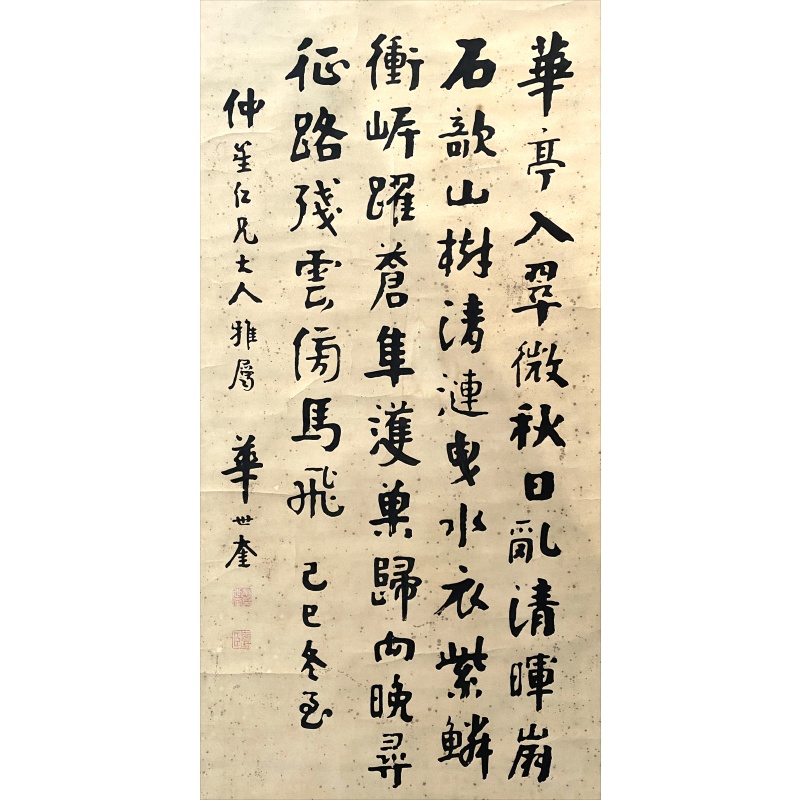 華亭入翠微秋日亂清暉崩
石欹山樹清漣曳水衣紫鱗
衝岸躍蒼隼護巢歸向晚尋
征路殘雲傍馬飛 己巳冬至
仲笙仁兄大人雅屬
華世奎